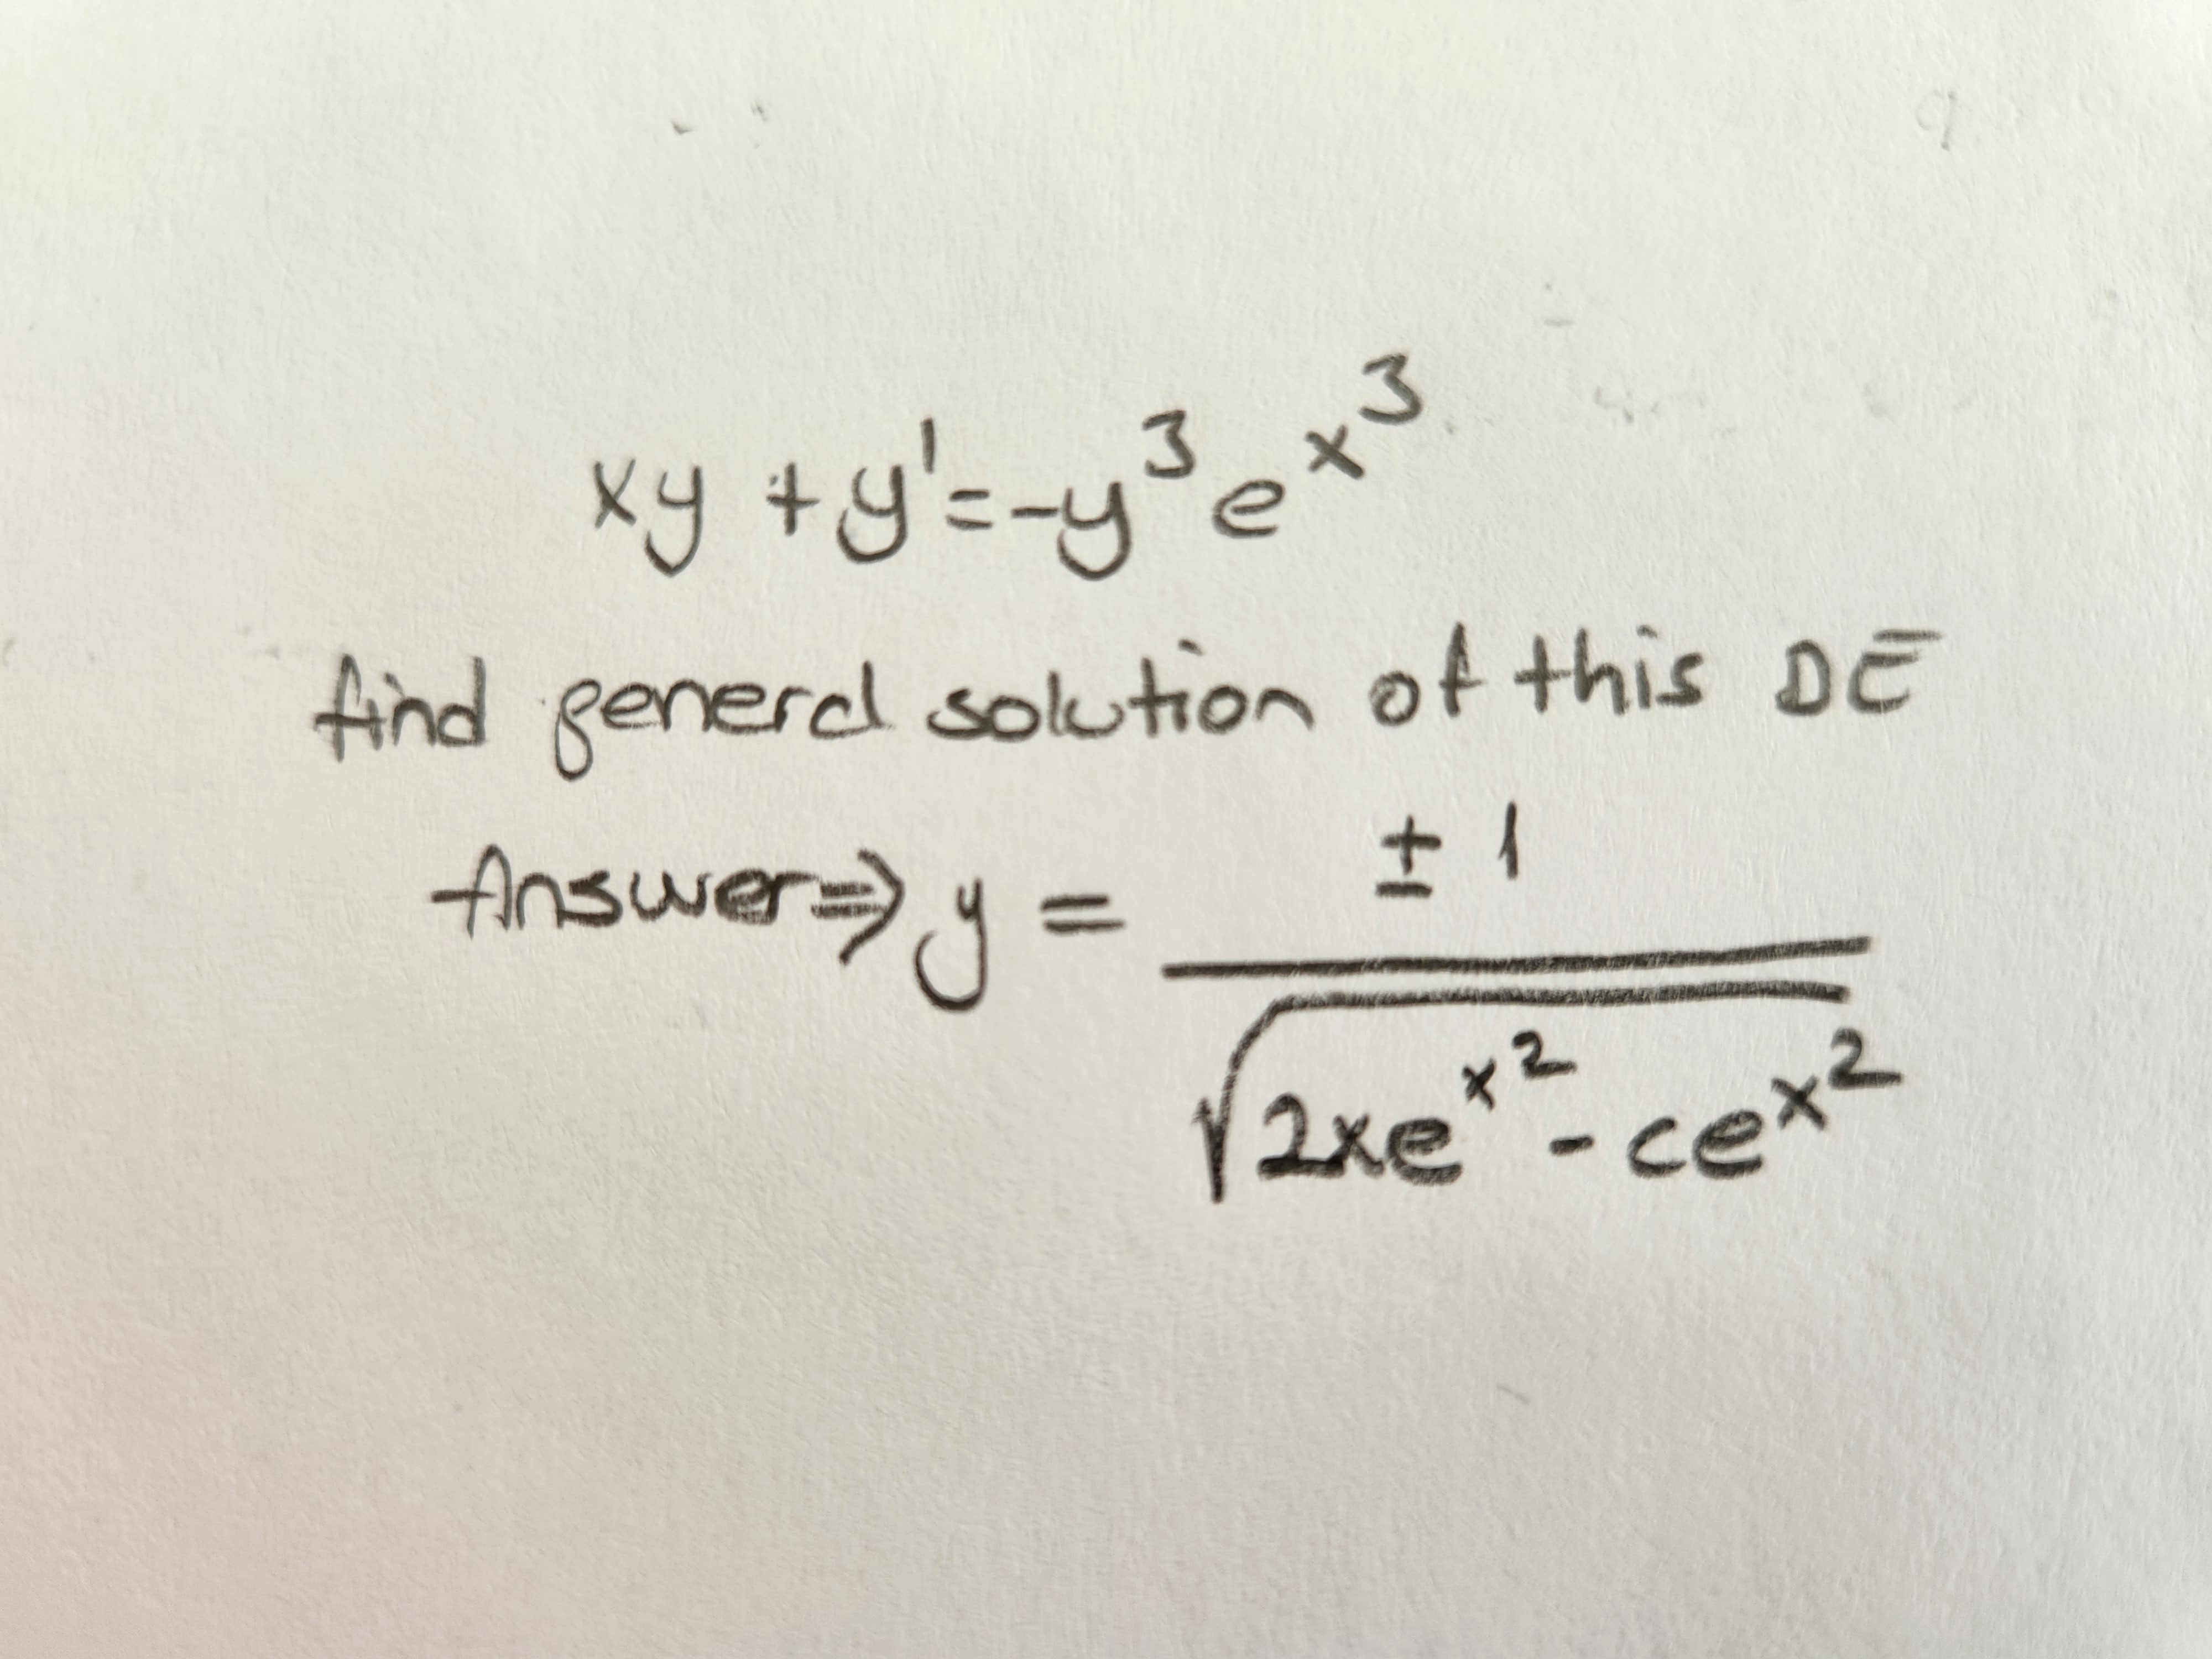 xy + y' = -y³ e^x³
find general solution of this DE
Answer ⇒ y = ± 1 / √(2xe^x² - ce^x²)